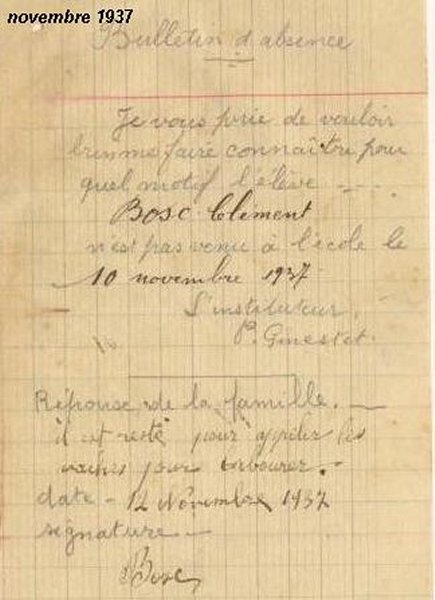 novembre 1937
Bulletin d'absence
Je vous prie de vouloir
bien me faire connaître pour
quel motif l'élève ....
Bosc Clément
n'est pas venu à l'école le
10 novembre 1937
L'instituteur,
P. Ginestet.
Réponse de la famille. —
il est resté pour appeler les
vaches pour labourer. -
date - 12 Novembre 1937
signature —
Bosc